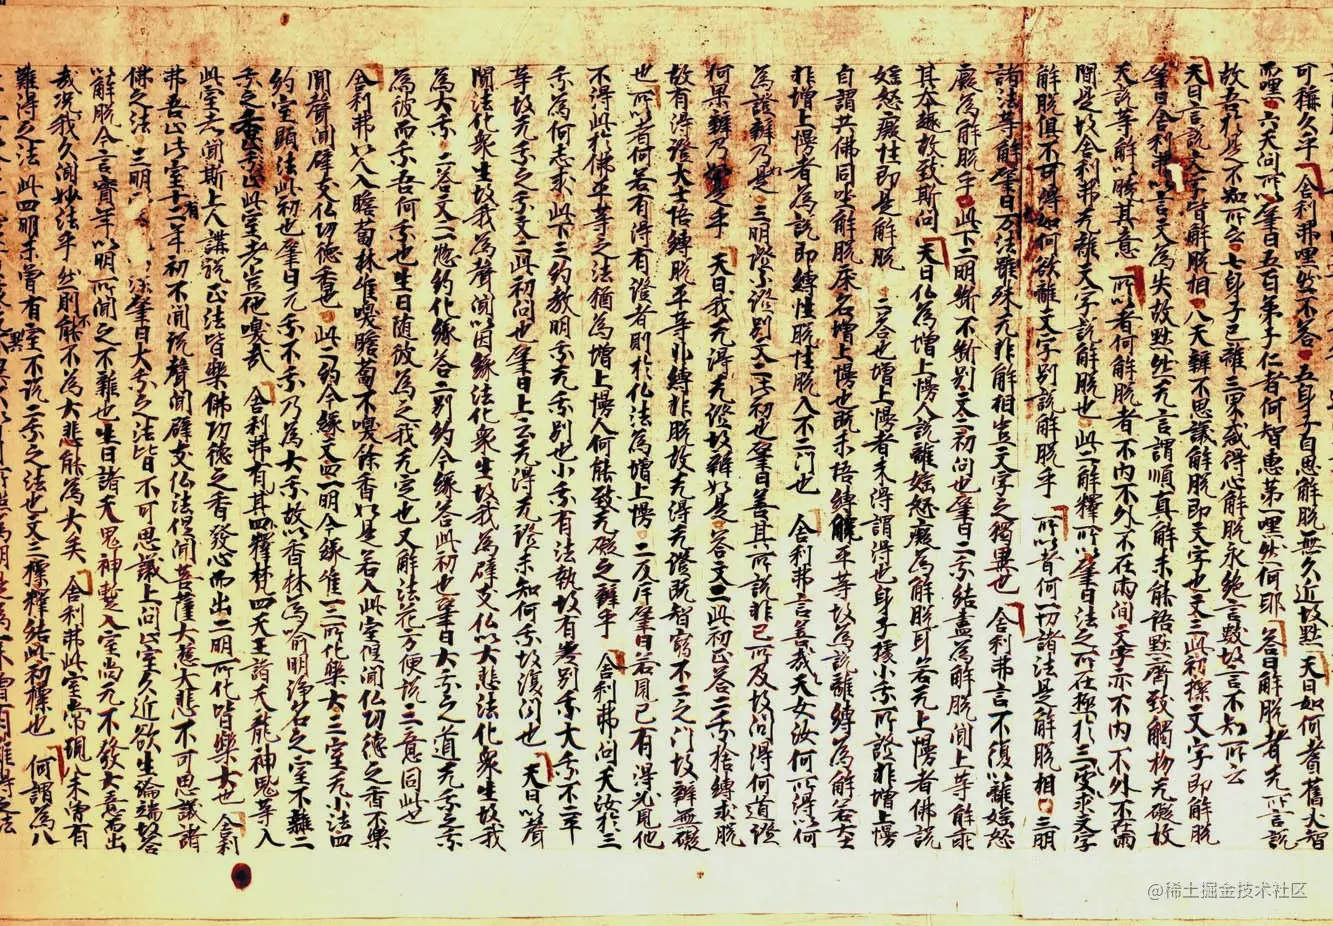 可稱久乎　舍利弗嘿然不答　五身子自思解脫無久近故默　天曰如何耆舊大智
而嘿　六天問所以肇曰五百弟子仁者何智惠第一嘿然何耶　答曰解脫者无所言說
故吾於是不知所云　七身子已離三界或得心解脫永絕言數故言不知所云
天曰言說文字皆解脫相　八天辯不思議解脫即文字也文三此初標文字即解脫
肇曰舍利弗以言文為失故默然无言謂順真解未能語默齊致觸物无礙故
天說等解以曉其意　所以者何解脫者不內不外不在兩間文字亦不內不外不在兩
間是故舍利弗无離文字說解脫也　此二解釋所以肇曰法之所在極於三處求文字
解脫俱不可得如何欲離文字別說解脫乎　所以者何一切諸法是解脫相　三明
諸法等解肇曰万法雖殊无非解相豈文字之獨異也　舍利弗言不復以離婬怒
癡為解脫乎　此下二明斷不斷別文二初問也肇曰二乘結盡為解脫聞上等解乖
其本趣故致斯問　天曰仏為增上慢人說離婬怒癡為解脫耳若无上慢者佛說
婬怒癡性即是解脫　二答也增上慢者未得謂得也身子據小乘所證非增上慢
自謂共佛同坐解脫床名增上慢也既未語縛解平等故為說離縛為解若大士
非增上慢者為說即縛性脫性入不二門也　舍利弗言善哉天女汝何所得以何
為證辯乃如是　三明證不證別文二此初也肇曰善其所說非己所及故問得何道證
何果辯乃如是乎　天曰我无得无證故辯如是　答文二此初正答二乘捨縛求脫
故有得證大士語縛脫平等非縛非脫故无得无證既智窮不二之門故辯無礙
也　所以者何若有得有證者則於仏法為增上慢　二反斥肇曰若見己有得必見他
不得此於佛平等之法猶為增上慢人何能致无礙之辯乎　舍利弗問天汝於三
乘為何志求　此下三約教明乘无乘別也小乘有法執故有異別乘大乘不二平
等故无乘之乘文二此初問也肇曰上云无得无證未知何乘故復問也　天曰以聲
聞法化眾生故我為聲聞以因緣法化眾生故我為辟支仏以大悲法化眾生故我
為大乘　二答文二總約化緣答二別約今緣答此初也肇曰大乘之道无乘之乘
為彼而乘吾何乘也生曰随彼為之我无定也又解法花方便說三意同此也
舍利弗如人入瞻蔔林唯嗅瞻蔔不嗅餘香如是若入此室但聞仏功德之香不樂
聞聲聞辟支仏功德香也　此二約今緣文四一明今緣唯一二所化樂大三室无小法四
約室顯法此初也肇曰无乘不乘乃為大乘故以香林為喻明淨名之室不雜二
乘之香止此室者豈他嗅哉　舍利弗有其四釋梵四天王諸天龍神鬼等入
此室者聞斯上人講說正法皆樂佛功德之香發心而出　二明所化皆樂大也　舍利
弗吾止此室十有二年初不聞說聲聞辟支仏法但聞菩薩大慈大悲不可思議諸
佛之法　三明肇曰大乘之法皆曰不可思議上問止室久近欲生論端故答
以解脫今言實年以明所聞之不雜也生曰諸天鬼神暫入室尚无不發大意而出
哉況我久聞妙法乎然則不能不為大悲能為大矣　舍利弗此室常現八未曾有
難得之法　此四明未曾有室不說二乘之法也文三標釋結此初標也　何謂為八